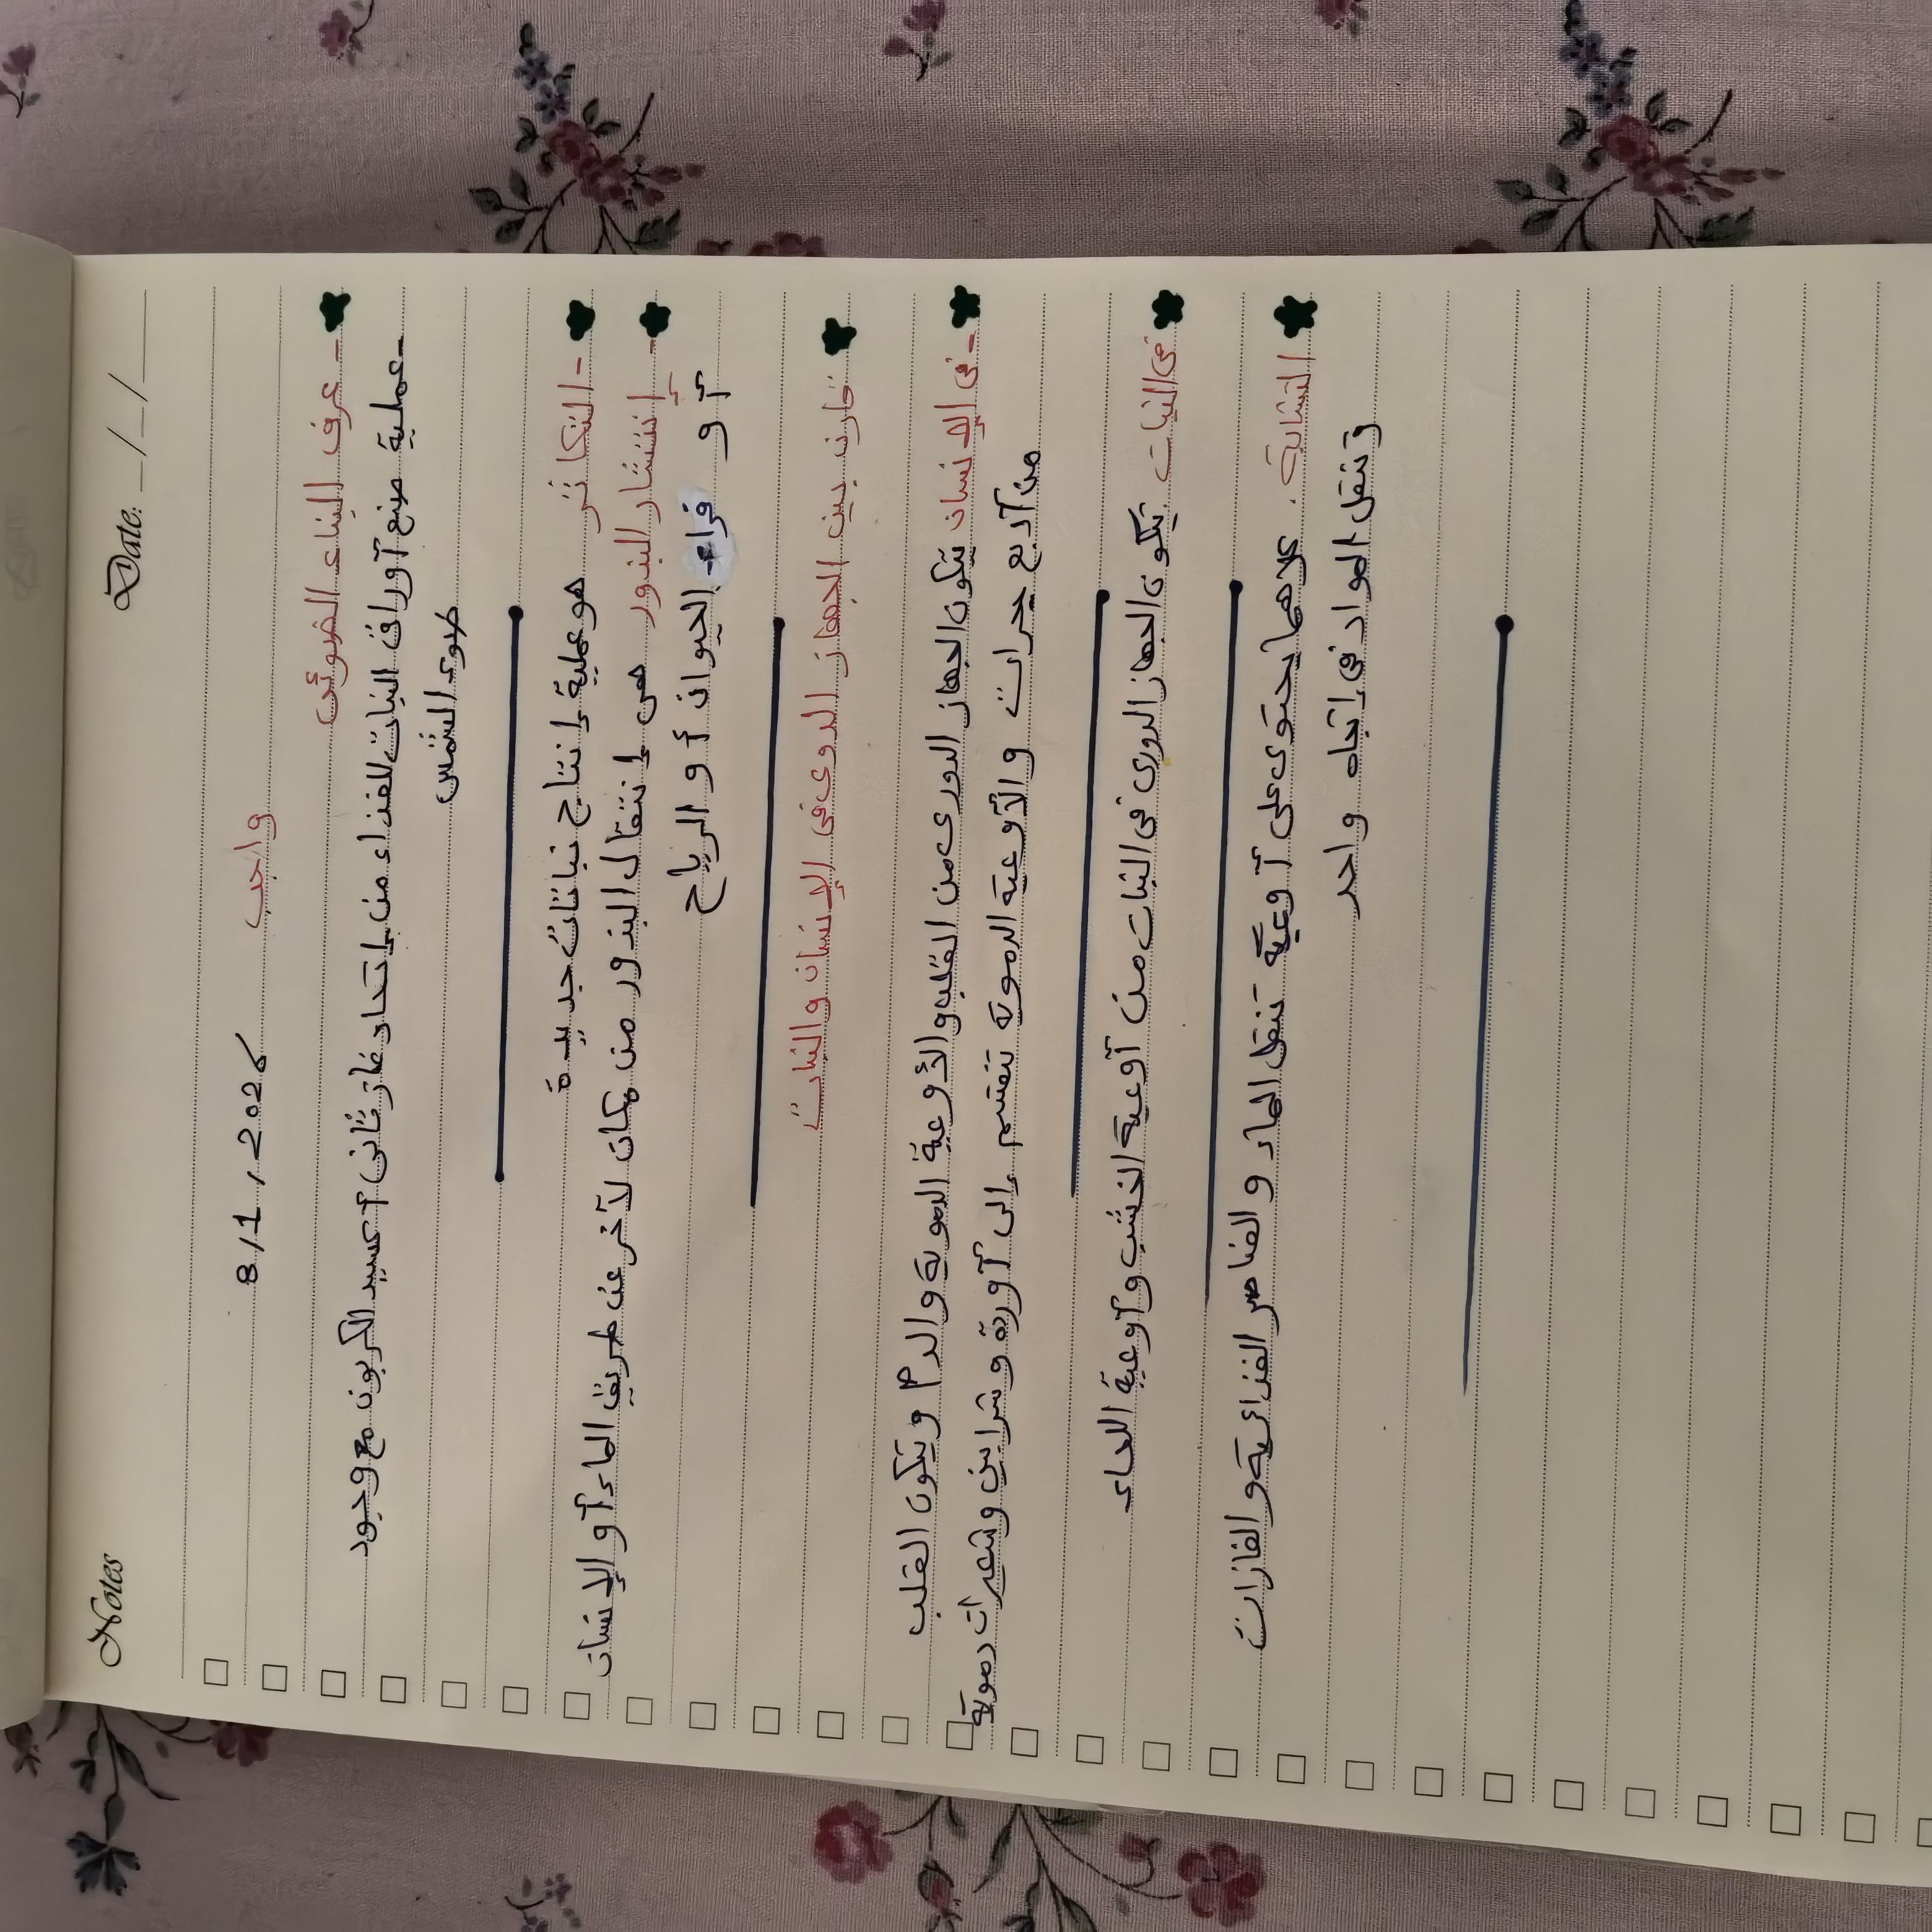 Notes
Date: __/__/__
واجب
8/1/2026
- عرف البناء الضوئى
- عملية صنع آوراق النبات للغذاء من إتحاد غاز ثانى آكسيد الكربون مع وجود
ضوء الشمس
- التكاثر هو عملية إنتاج نباتات جديدة
- إنتشار البذور هى إنتقال البذور من مكان لآخر عن طريق الماء آو الإنسان
أو فراء الحيوان أو الرياح
قارن بين الجهاز الدوى فى الإنسان والنبات
- فى الإنسان يتكون الجهاز الدورى من القلب والأوعية الدموية والدم ويتكون القلب
من آربع حجرات والآوعية الدموية تنقسم إلى آوردة وشراين وشعيرات دموية
فى النبات يتكون الجهاز الدورى فى النبات من آوعية الخشب وآوعية اللحاء
التشابة. كلاهما يحتوى على آوعية تنقل الماء و العناصر الغذائية والغازات
وتنقل المواد فى إتجاه واحد